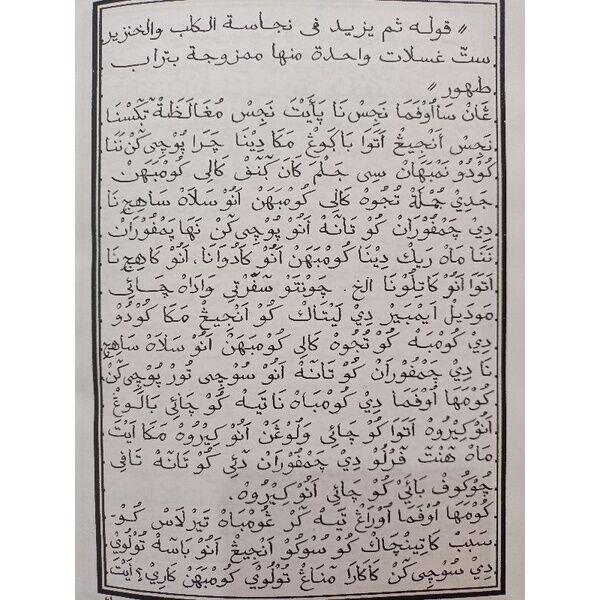 〃 قوله ثم يزيد فى نجاسة الكلب والخنزير
ستّ غسلات واحدة منها ممزوجة بتراب
طهور 〃
نَجِس أَنْجِيڠْ أَتَوَا بَاكَوڠْ مَكَا دِيْنَا چَرَا پُوچِى كَنْ نَنَا
كُودُو تَمْبَهَانْ سِى جَلْم كَانَ كَنَفْ كَالِى كُومْبَهَنْ
جَدِيْ جُمْلَةْ تُجُوهْ كَالِى كُومْبَهَنْ أَنُو سَلَاهْ سَاهِجِ نَا
دِيْ چَمْفُورَانْ كُو تَانَهْ أَنُو پُوچِى كَنْ نَهَا پَمْفُورَانْ
نَنَا مَاهْ رَيْك دِيْنَا كُومْبَهَنْ أَنُو كَادُوَانَا. أَنُو كَاهِجِ نَا
أَتَوَا أَنُو كَاتِلُونَا الخ. چَونْتَو سَفَرْتِى وَادَاهْ چَائِى
مَودَيْل أَيْمْبَيْر دِيْ لَيْتَاكْ كُو أَنْجِيڠْ مَكَا كُودُو
دِيْ كُومْبَهْ كُو تُجُوهْ كَالِى كُومْبَهَنْ أَنُو سَلَاهْ سَاهِجِ
نَا دِيْ چَمْفُورَانْ كُو تَانَهْ أَنُو سُوچِى تُور پُوچِى كَنْ
كُومَهَا أُوفَمَا دِيْ كُومْبَاهْ نَا تَيَهْ كُو چَائِى بَالَوڠْ
أَنُو كِيْرُوهْ أَتَوَا كُو چَائِى وَلُوڠَنْ أَنُو كِيْرُوهْ مَكَا أَيْتَ
مَاهْ هَنْتَ فَرْلُو دِيْ چَمْفُورَانْ دَئِى كُو تَانَهْ تَافِى
چُوكُوفْ بَائِيْ كُو چَائِى أَنُو كِيْرُوهْ.
كُومَهَا أُوفَمَا أُورَاڠْ تَيَهْ كَرْ ڠُومْبَاهْ تَيْرْلَاسْ كُو-
سَبَبْ كَاتِيْنْچَاكْ كُو سُوكُو أَنْجِيڠْ أَنُو بَاسَهْ تُولُويْ
دِيْ سُوچِى كَنْ كَاكَارَا مَنَاڠْ تُولُويْ كُومْبَهَنْ كَارِيْ؟ أَيْتَ